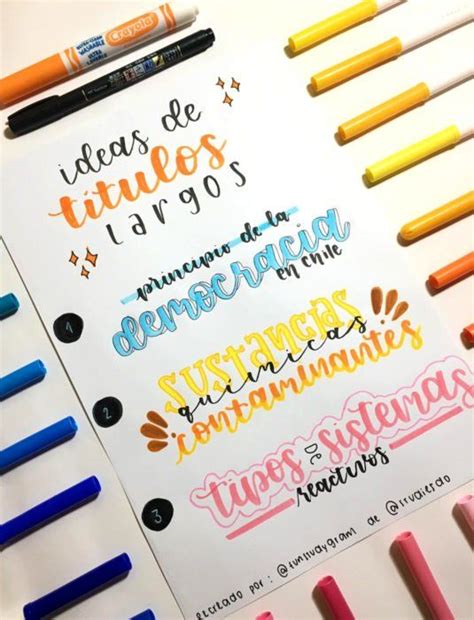 WASHABLE
Crayola
ideas de
títulos
largos
1
principio de la
democracia
en chile
2
sustancias
químicas
contaminantes
3
tipos de sistemas
reactivos
recreado por: @funstudygram de